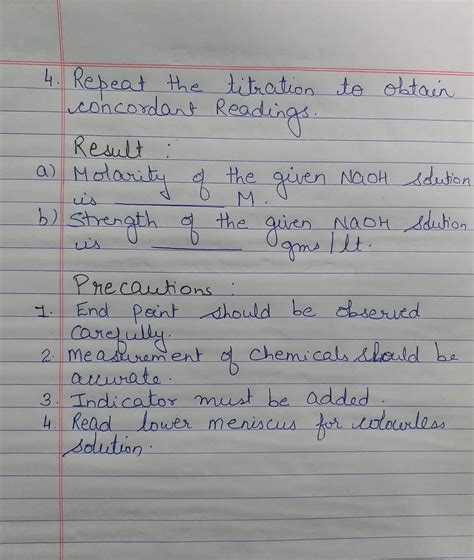 4. Repeat the titration to obtain
concordant Readings.
Result :
a) Molarity of the given NaOH solution
is ________ M.
b) Strength of the given NaOH solution
is ________ gms/lt.
Precautions :
1. End point should be observed
carefully.
2. Measurement of chemicals should be
accurate.
3. Indicator must be added.
4. Read lower meniscus for colourless
solution.